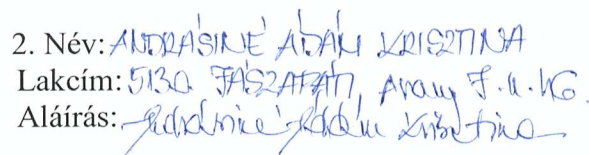 2. Név: ANDRÁSINÉ ÁDÁM KRISZTINA
Lakcím: 5130. JÁSZAPÁTI, Arany J. u. 46.
Aláírás: Andrásiné Ádám Krisztina